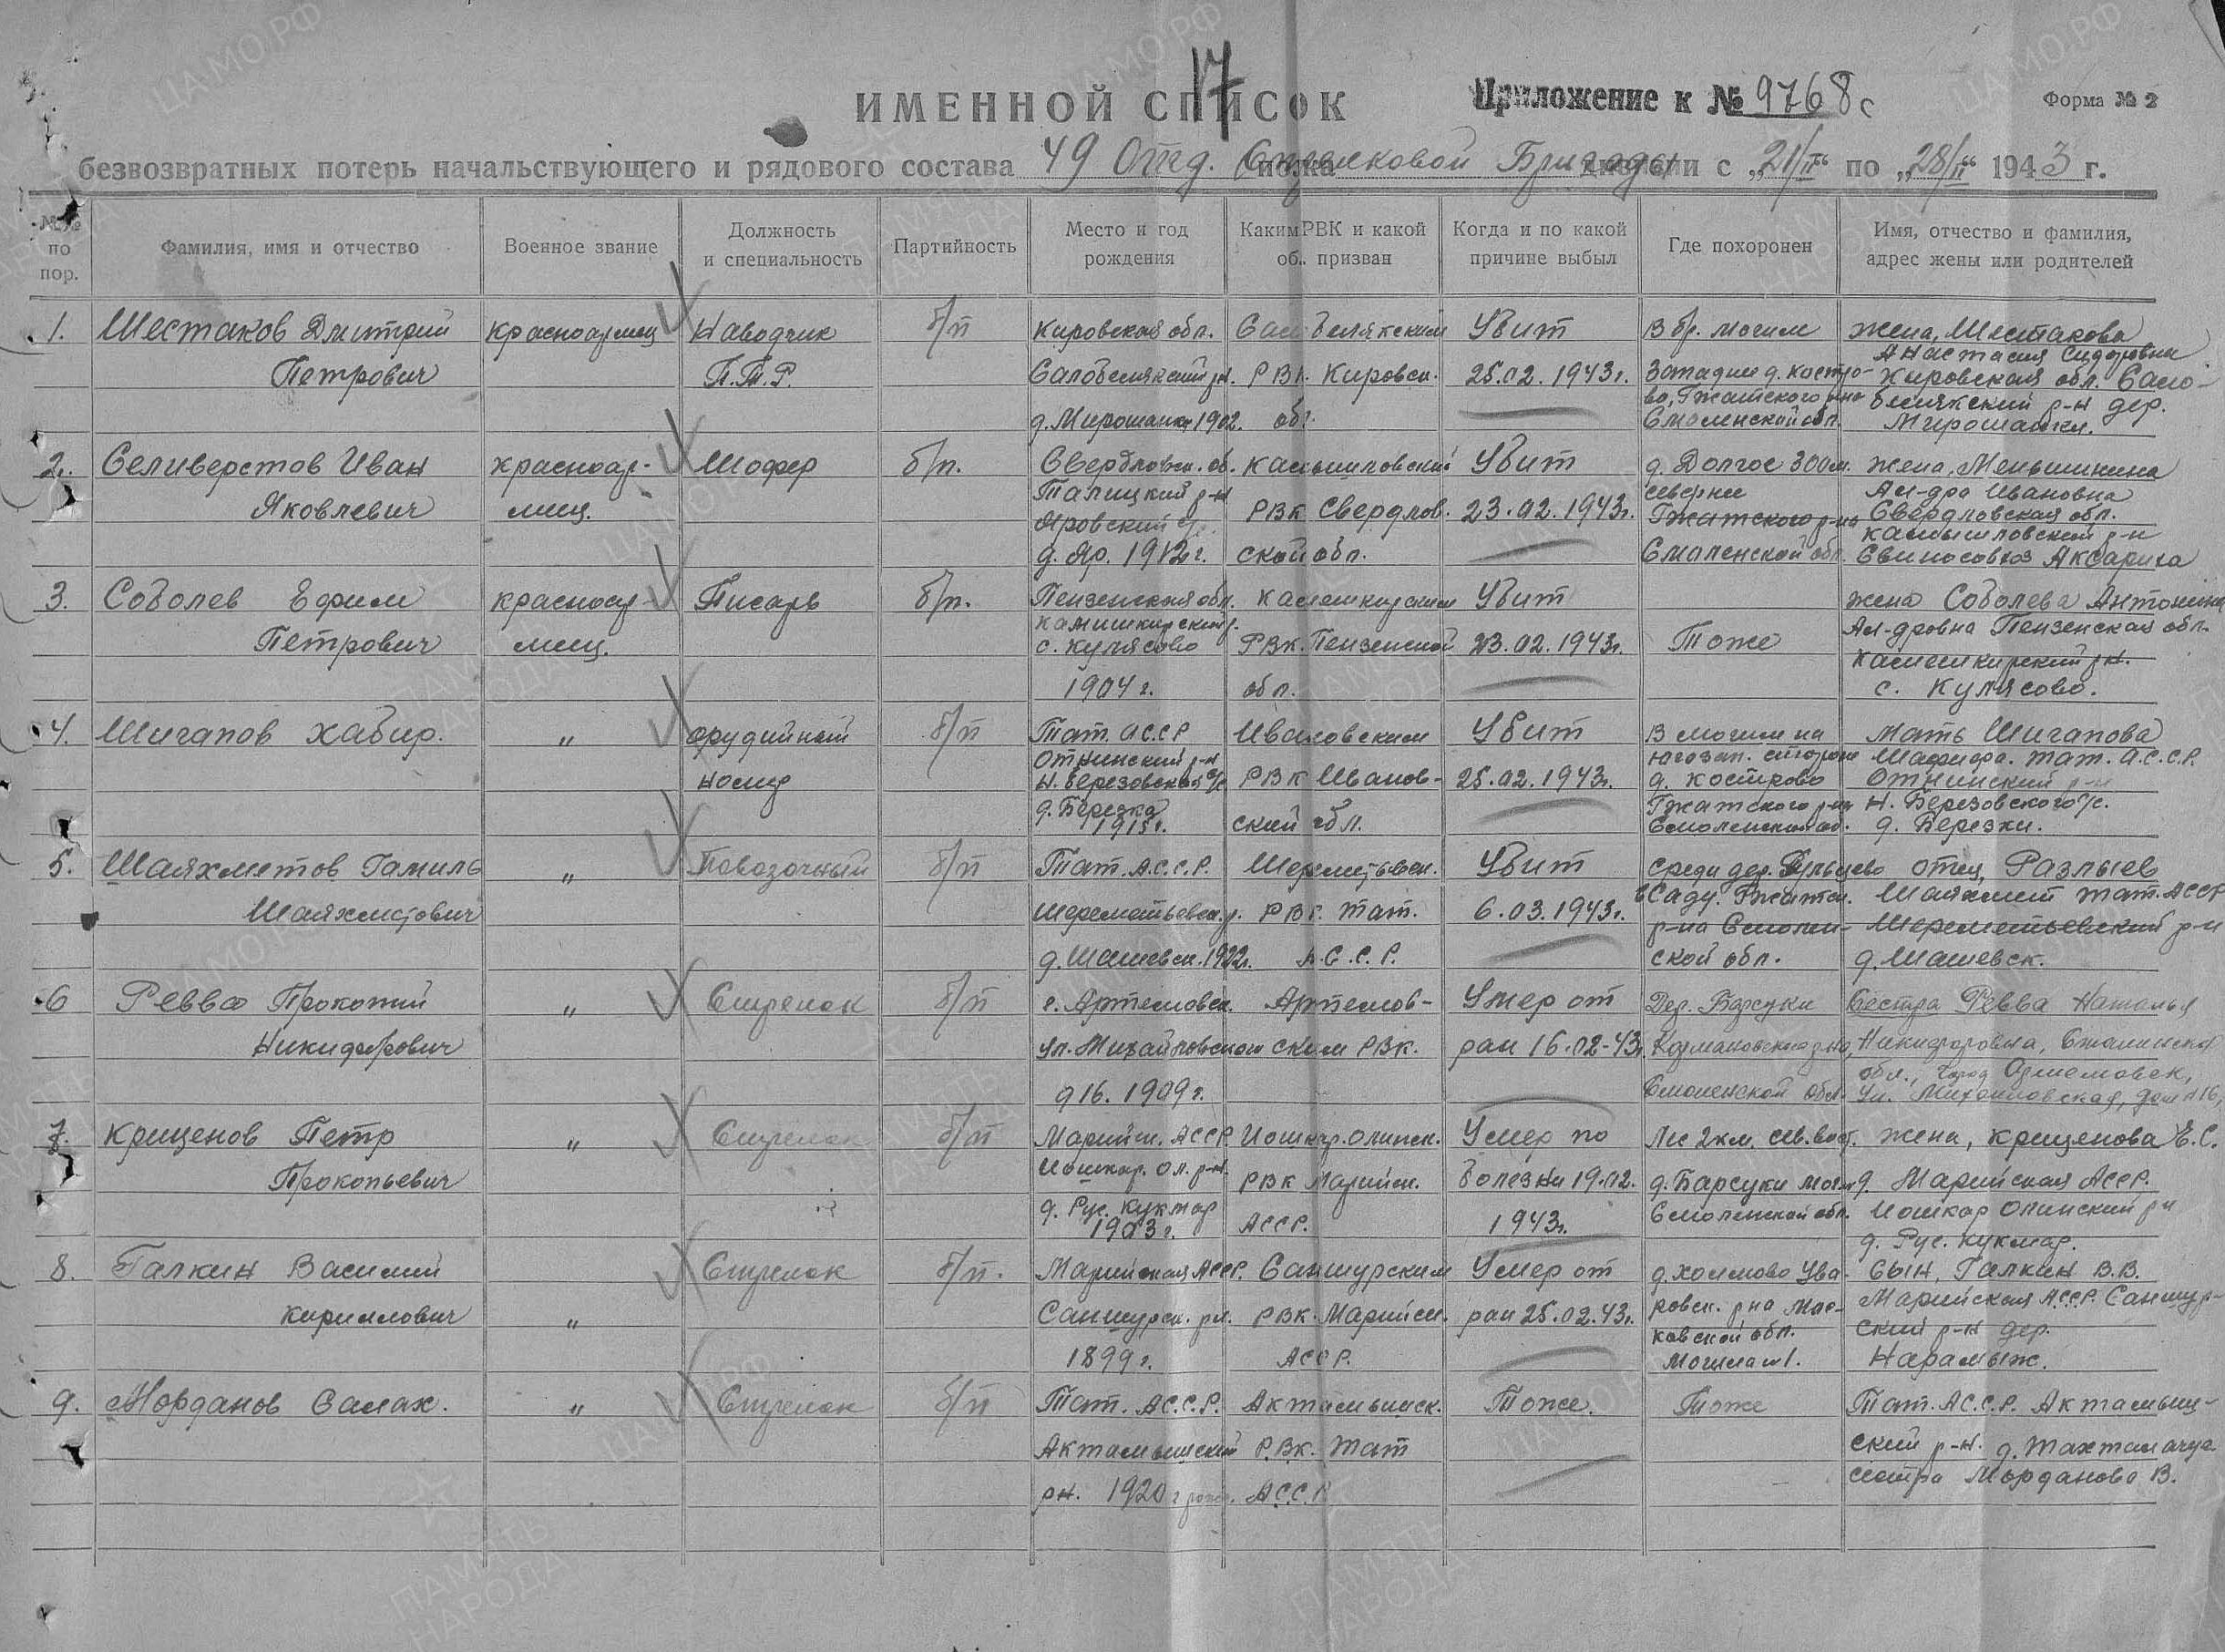 17
ИМЕННОЙ СПИСОК
Приложение к № 9768с
Форма № 2
безвозвратных потерь начальствующего и рядового состава 49 Отд. Стрелковой Бригады с „21/II“ по „28/II“ 1943 г.
№№ по пор.
Фамилия, имя и отчество
Военное звание
Должность и специальность
Партийность
Место и год рождения
Каким РВК и какой об. призван
Когда и по какой причине выбыл
Где похоронен
Имя, отчество и фамилия, адрес жены или родителей
1.
Шестаков Дмитрий
Петрович
красноармеец
Наводчик
П.Т.Р.
б/п
Кировская обл.
Салобелякский рн.
д. Мирошаики 1902.
Салобелякским
РВК. Кировск.
обл.
Убит
25.02.1943г.
В бр. могиле
Западнее д. Костро-
во, Гжатского р-на
Смоленской обл.
жена, Шестакова
Анастасия Сидоровна
Кировская обл. Сало-
белякский р-н дер.
2.
Селиверстов Иван
Яковлевич
красноар-
меец.
Шофер
б/п.
Свердловск. об.
Талицкий р-н
Яровский с/с.
д. Яр. 1912г.
Камышловский
РВК Свердлов.
ской обл.
Убит
23.02.1943г.
д. Долгое 300м.
севернее
Гжатского р-на
Смоленской обл.
жена, Меньшинина
Ал-дра Ивановна
Свердловская обл.
Камышловский р-н
Свиносовхоз Аксариха
3.
Соболев Ефим
Петрович
красноар-
меец.
Писарь
б/п.
Пензенская обл.
Камишкирский р.
с. Кулясово
1904г.
Камешкирским
РВК. Пензенской
обл.
Убит
23.02.1943г.
Тоже
жена Соболева Антонина
Ал-дровна Пензенская обл.
Камешкирский рн.
с. Кулясово.
4.
Шигапов Хабир.
„
орудийный
номер
б/п
Тат. АССР
Отнинский р-н
Н. Березовский с/с
д. Березка
1915г.
Ивановским
РВК Иванов-
ский обл.
Убит
25.02.1943г.
В могиле на
югозап. стороне
д. Кострово
Гжатского р-на
Смоленской об.
Мать Шигапова
Шафифа. Тат. А.С.С.Р.
Отнинский р-н
Н. Березовского с/с.
д. Березки.
5.
Шаяхметов Гамиль
Шаяхметович
„
Повозочный
б/п
Тат. А.С.С.Р.
Шереметьевск. р.
д. Шашевск. 1922г.
Шереметьевск.
РВК. Тат.
А.С.С.Р.
Убит
6.03.1943г.
среди дер.
в Саду. Гжатск.
р-на Смолен-
ской обл.
отец, Разлыев
Шаяхмет Тат. АССР
Шереметьевский р-н
д. Шашевск.
6
Ревва Прокопий
Никифорович
„
Стрелок
б/п
г. Артемовск.
ул. Михайловская
д 16. 1909г.
Артемов-
ским РВК.
Умер от
ран 16.02-43г.
Дер. Барсуки
Смоленской обл.
Сестра Ревва Наталья
Никифоровна, Сталинская
обл., город Артемовск,
ул. Михайловская, дом №16,
7.
Крищенов Петр
Прокопьевич
„
Стрелок
б/п
Марийск. АССР.
Иошкар. Ол. р-н.
д. Рус. Кукмар
1903г.
Иошкар. Олинск.
РВК Марийск.
АССР.
Умер по
болезни 19.02.
1943г.
Лес 2км. сев. вост.
д. Барсуки
Смоленской обл.
жена, Крищенова Е.С.
Марийская АССР.
Иошкар Олинский рн
д. Рус. Кукмар.
8.
Галкин Василий
Кириллович
„
Стрелок
б/п.
Марийская АССР.
Санчурск. рн.
1899г.
Санчурским
РВК. Марийск.
АССР.
Умер от
ран 25.02.43г.
д. Холмово Ува-
ровск. рна Мос-
ковской обл.
Могила №1.
сын, Галкин В.В.
Марийская АССР. Санчур-
ский р-н дер.
Нарамыж.
9.
Морданов Салах.
„
Стрелок
б/п
Тат. А.С.С.Р.
Актанышский
рн. 1920 г рожд.
Актанышск.
РВК. Тат
А.С.С.Р.
Тоже.
Тоже
Тат. А.С.С.Р. Актаныш-
ский р-н. д.
сестра Морданова В.
ЦАМО.РФ
ПАМЯТЬ НАРОДА